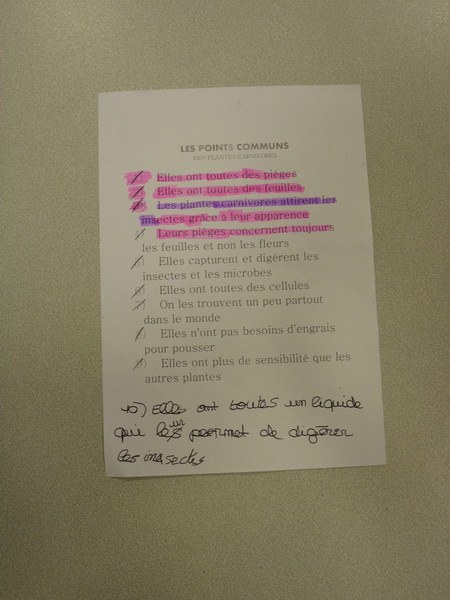 LES POINTS COMMUNS
DES PLANTES CARNIVORES
1) Elles ont toutes des pièges
2) Elles ont toutes des feuilles
3) Les plantes carnivores attirent les
insectes grâce à leur apparence
4) Leurs pièges concernent toujours
les feuilles et non les fleurs
5) Elles capturent et digèrent les
insectes et les microbes
6) Elles ont toutes des cellules
7) On les trouvent un peu partout
dans le monde
8) Elles n'ont pas besoins d'engrais
pour pousser
9) Elles ont plus de sensibilité que les
autres plantes
10) Elles ont toutes un liquide
qui leur permet de digérer
les insectes